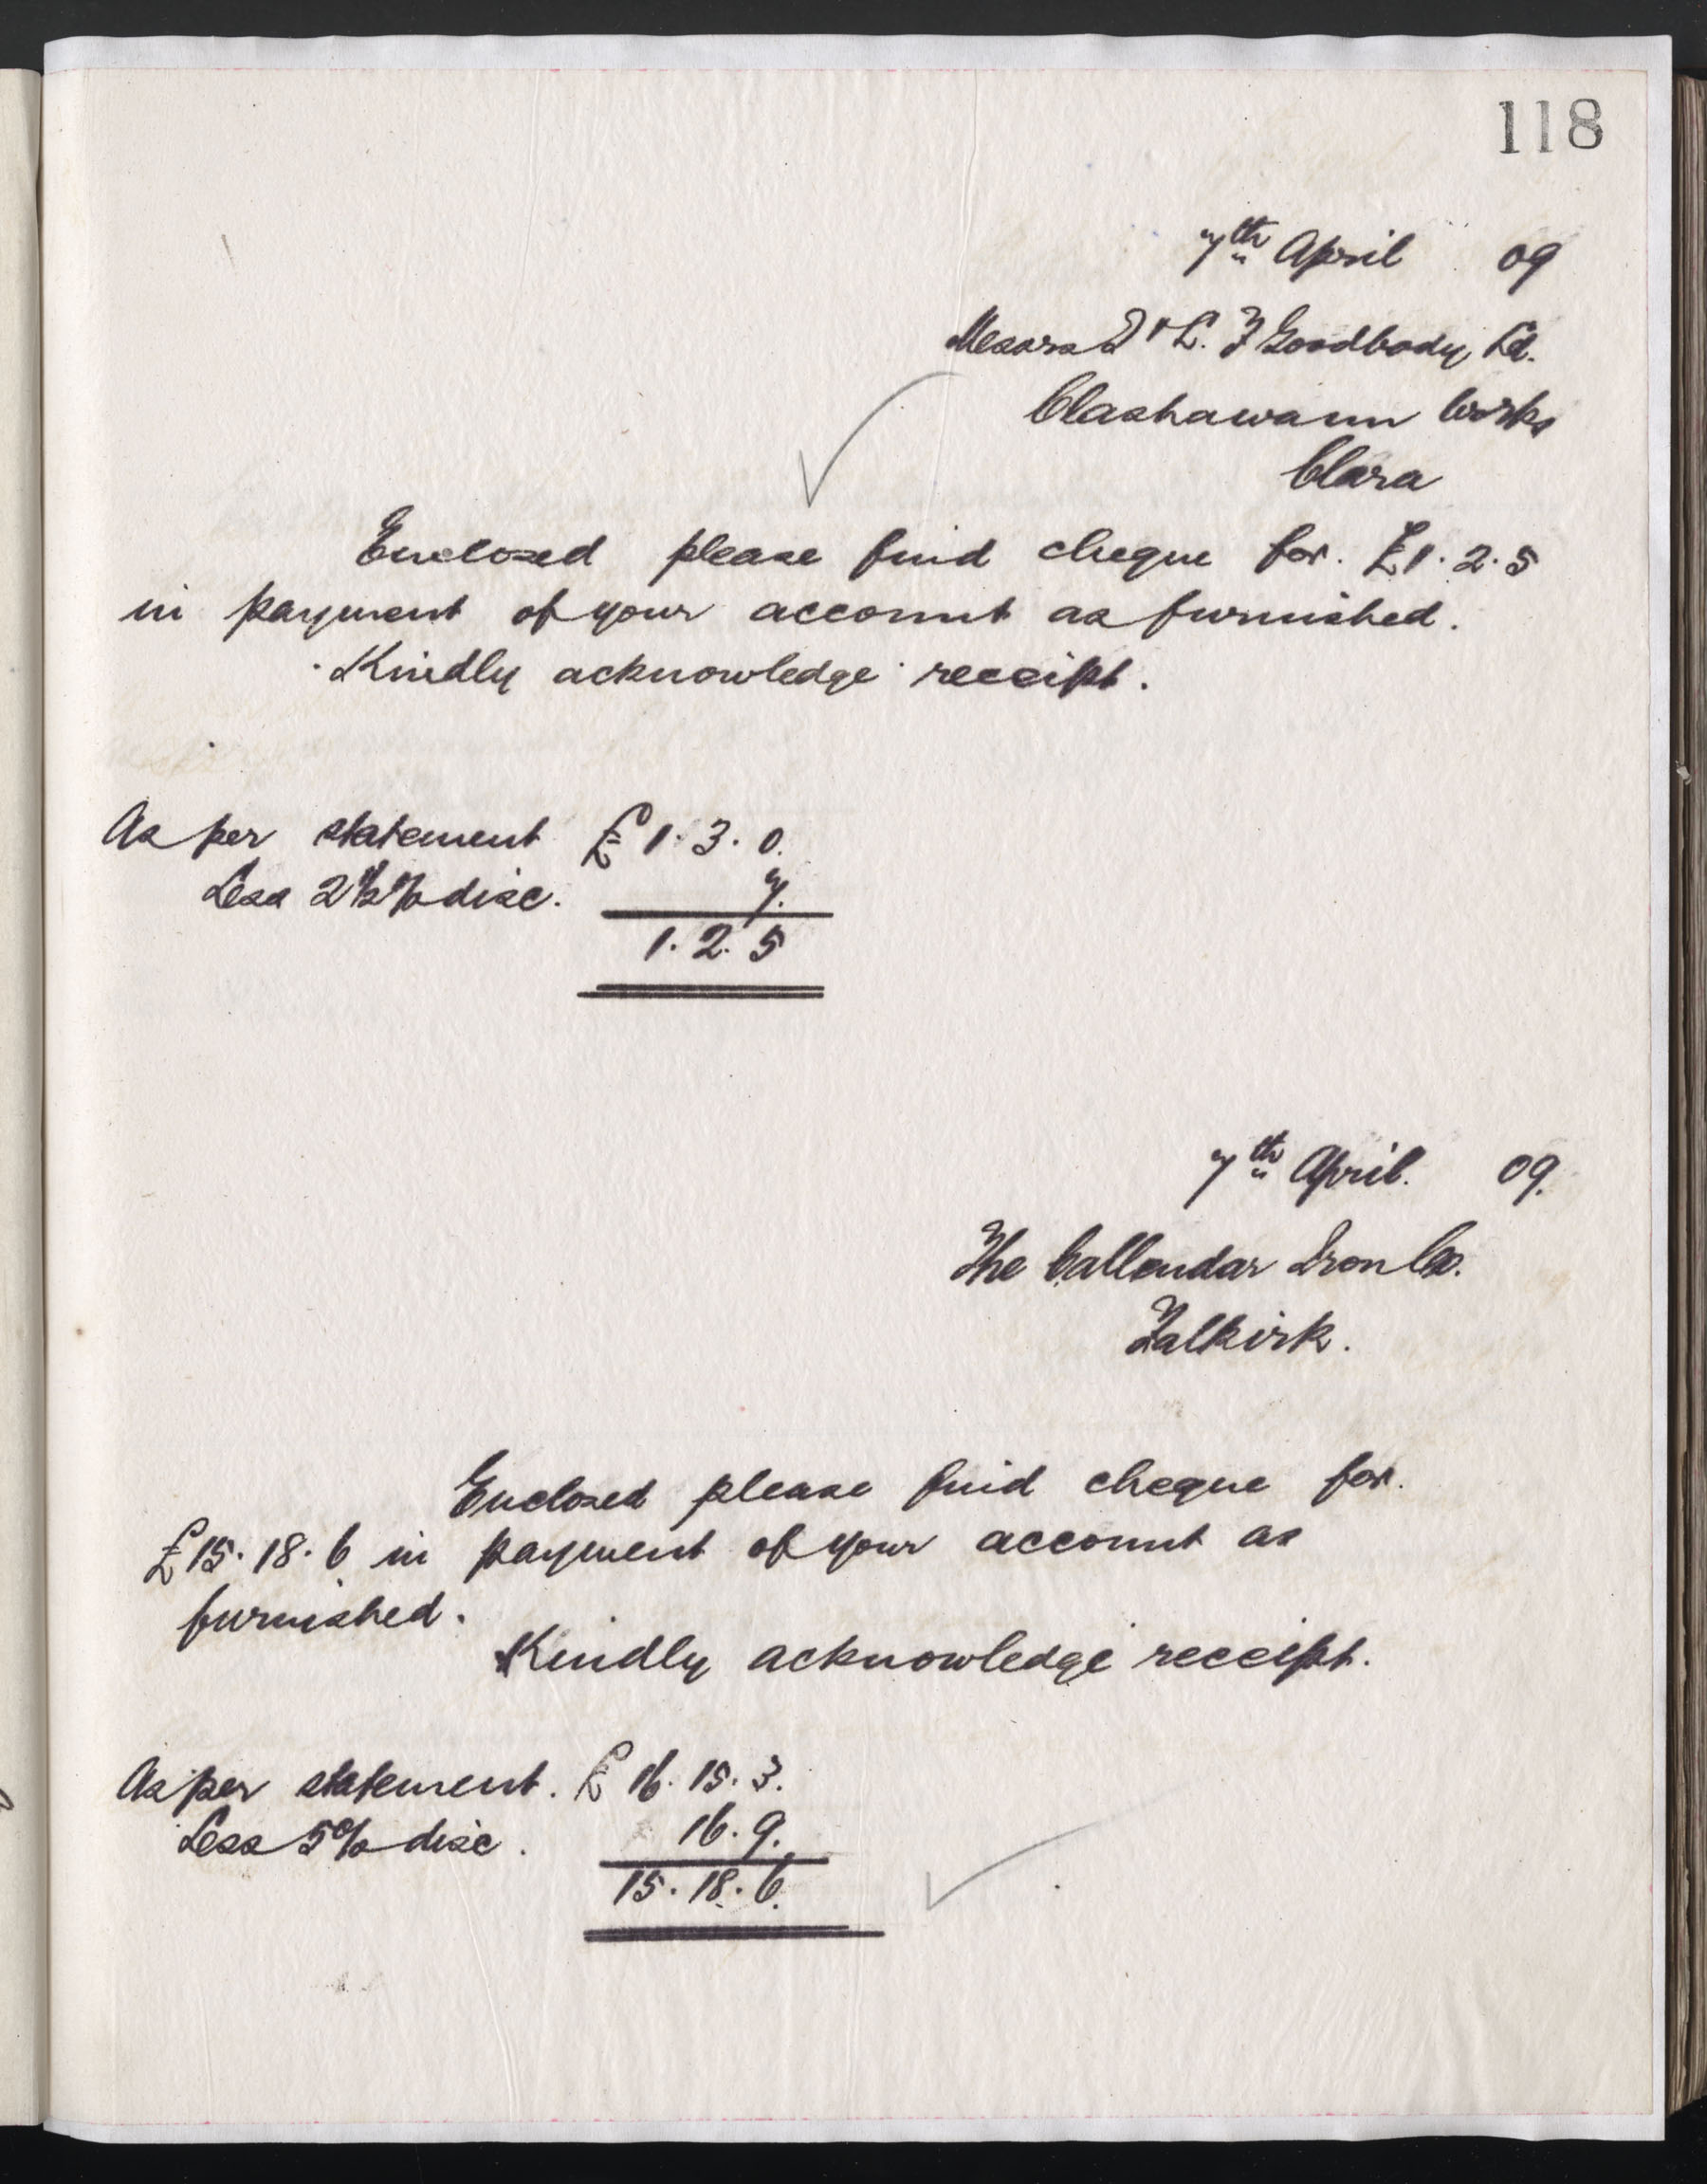 118
7th April 09
Messrs J & L. F Goodbody Ld.
Clashawaun Works
Clara
Enclosed please find cheque for. £1. 2. 5
in payment of your account as furnished.
Kindly acknowledge receipt.
As per statement £ 1. 3. 0.
Less 2½% disc. 7.
1. 2. 5
7th April. 09.
The Callendar Iron Co.
Falkirk.
Enclosed please find cheque for.
£15. 18. 6 in payment of your account as
furnished.
Kindly acknowledge receipt.
As per statement. £ 16. 15. 3.
Less 5% disc. 16. 9.
15. 18. 6.